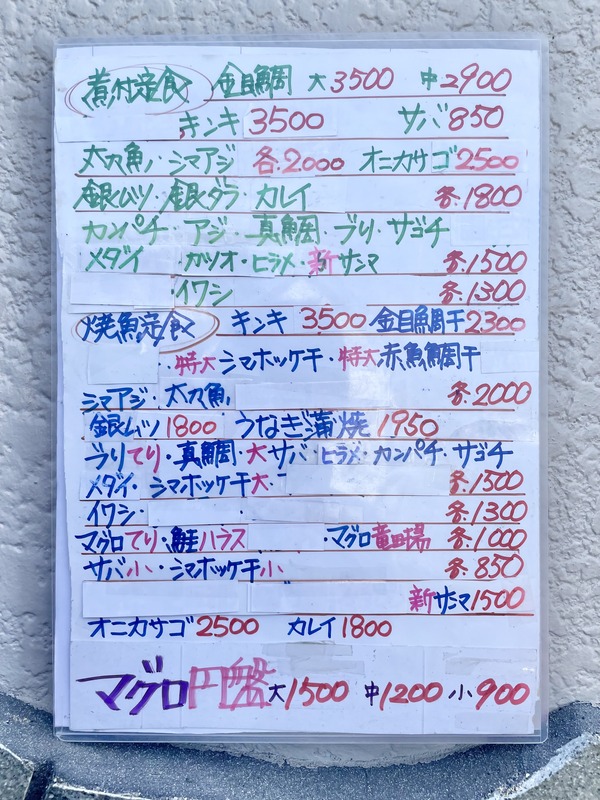 煮付定食 金目鯛 大3500 中2900
キンキ 3500 サバ850
太刀魚・シマアジ 各2000 オニカサゴ2500
銀ムツ・銀ダラ・カレイ 各1800
カンパチ・アジ・真鯛・ブリ・サゴチ
メダイ カツオ・ヒラメ・新サンマ 各1500
イワシ 各1300
焼魚定食 キンキ 3500 金目鯛干2300
・特大シマホッケ干・特大赤魚鯛干
シマアジ・太刀魚 各2000
銀ムツ1800 うなぎ蒲焼1950
ブリてり・真鯛・大サバ・ヒラメ・カンパチ・サゴチ
メダイ・シマホッケ干大 各1500
イワシ・ 各1300
マグロてり・鮭ハラス ・マグロ竜田揚 各1000
サバ小・シマホッケ干小 各850
新サンマ1500
オニカサゴ2500 カレイ1800
マグロ円盤 大1500 中1200 小900